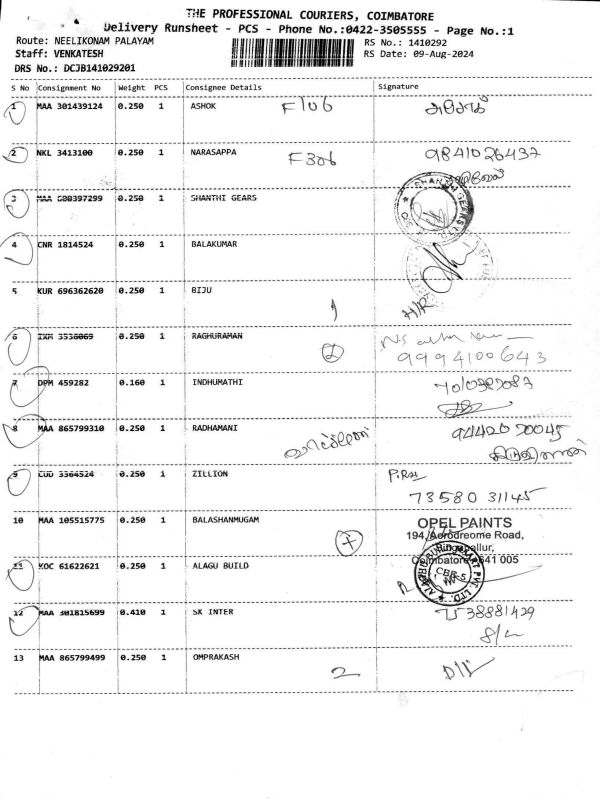 THE PROFESSIONAL COURIERS, COIMBATORE
Delivery Runsheet - PCS - Phone No.:0422-3505555 - Page No.:1
Route: NEELIKONAM PALAYAM RS No.: 1410292
Staff: VENKATESH RS Date: 09-Aug-2024
DRS No.: DCJB141029201
S No Consignment No Weight PCS Consignee Details Signature
1 MAA 301439124 0.250 1 ASHOK F106
2 NKL 3413100 0.250 1 NARASAPPA F306 9841026437
3 MAA 600397299 0.250 1 SHANTHI GEARS
4 CNR 1814524 0.250 1 BALAKUMAR
5 KUR 696362620 0.250 1 BIJU 1 H/R
6 IXM 3536069 0.250 1 RAGHURAMAN 2
9994100643
7 DPM 459282 0.160 1 INDHUMATHI
8 MAA 865799310 0.250 1 RADHAMANI 9442020045
9 CUD 3364524 0.250 1 ZILLION
73580 31145
10 MAA 105515775 0.250 1 BALASHANMUGAM OPEL PAINTS
194, Aerodreome Road,
Singanallur,
Coimbatore - 641 005
11 KOC 61622621 0.250 1 ALAGU BUILD
12 MAA 301815699 0.410 1 SK INTER
13 MAA 865799499 0.250 1 OMPRAKASH 2